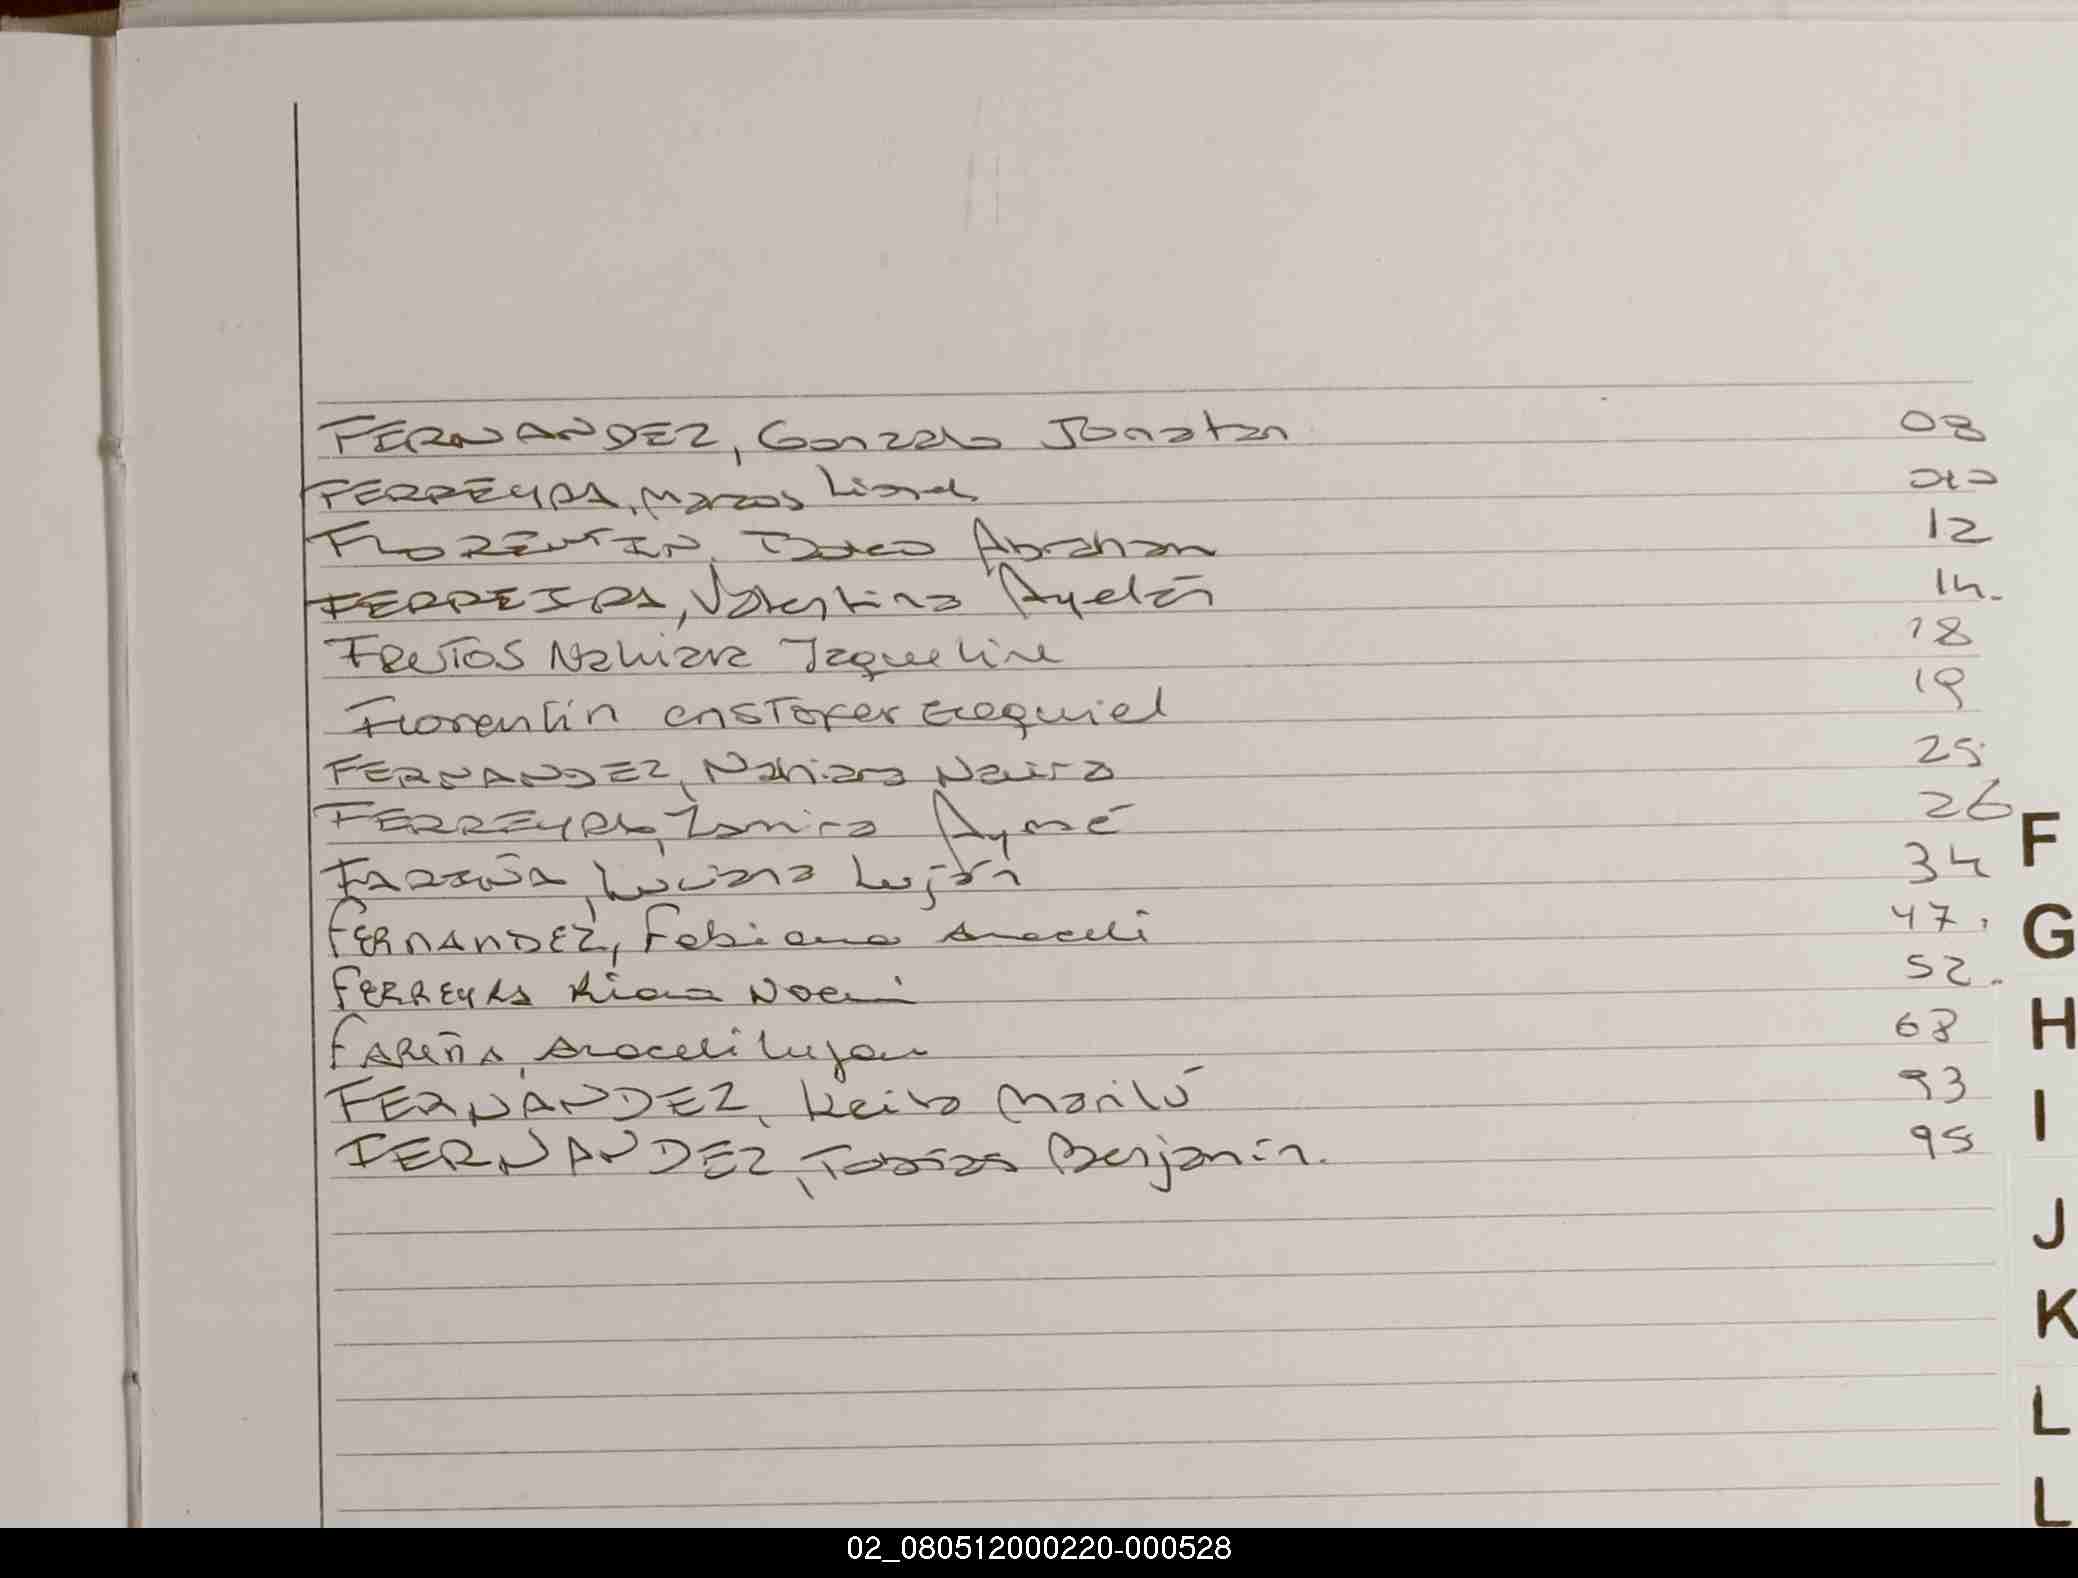 FERNANDEZ, Gonzalo Jonatan 08
FERREYRA, Marcos Lionel 010
FLORENTIN, Abraham 12
FERREIRA, Valentina Ayelén 14.
FRUTOS Nahiara Jaqueline 18
Florentin cristofer Ezequiel 19
FERNANDEZ, Nahiara Naira 25
FERREYRA, Zamira Aymé 26
FARIÑA, Luciana Luján 34
FERNANDEZ, Fabiana Araceli 47.
FERREYRA Kiara Noemi 52.
FARIÑA, Araceli Lujan 68
FERNANDEZ, Keila Marilú 93
FERNANDEZ, Tobías Benjamín. 95
F
G
H
I
J
K
L
L
02_080512000220-000528